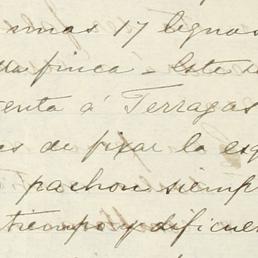 unas 17 leguas
la finca - Este se
enta á Terragas
es de fijar la esq
pachon siempr
tiempo y dificul